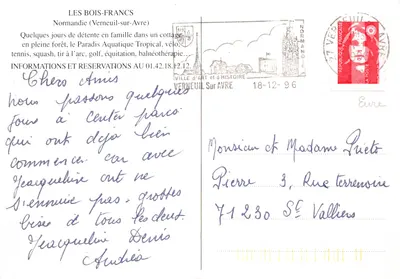 LES BOIS-FRANCS
Normandie (Verneuil-sur-Avre)
Quelques jours de détente en famille dans un cottage
en pleine forêt, le Paradis Aquatique Tropical, vélo,
tennis, squash, tir à l'arc, golf, équitation, balnéothérapie...
INFORMATIONS ET RESERVATIONS AU 01.42.18.12.12
Chers Amis
nous passons quelques
jours à center parcs
qui ont déjà bien
commencer car avec
Jacqueline ont ne
s'ennuie pas. grosses
bises à tous les deux.
Jacqueline Denis
Andréa
VILLE D'ART ET D'HISTOIRE
VERNEUIL Sur AVRE
NORMANDIE
18-12-96
27 VERNEUIL S AVRE
Eure
Monsieur et Madame
Pierre 3, Rue
71230 St Valliers